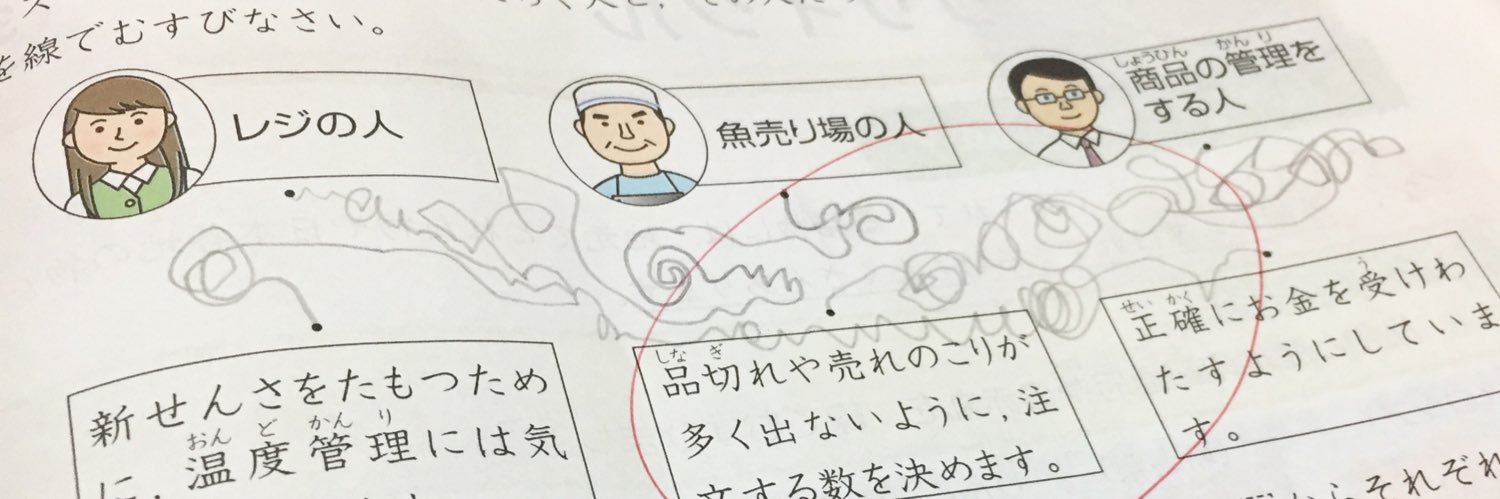 を線でむすびなさい。
レジの人
魚売り場の人
しょうひん かんり
商品の管理を
する人
新せんさをたもつため
おん ど かん り
に,温度管理には気
しな ぎ
品切れや売れのこりが
多く出ないように,注
文する数を決めます。
せい かく う
正確にお金を受けわ
たすようにしていま
す。
からそれぞれ